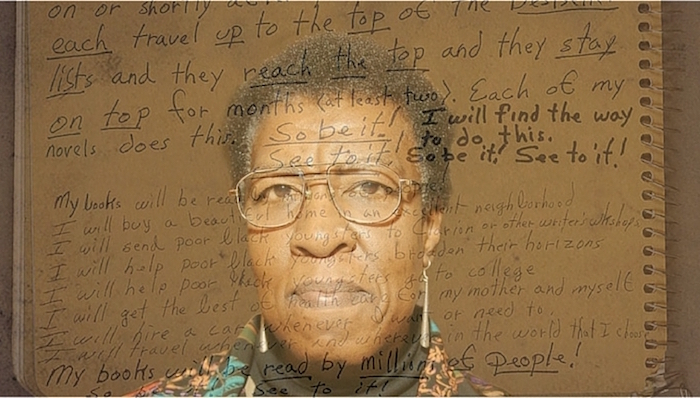 on or shortly the top of the Bestseller
each travel up to the top of
lists and they reach the top and they stay
on top for months (at least two). Each of my
novels does this. So be it! See to it!
I will find the way
to do this.
So be it! See to it!
My books will be read
I will buy a beautiful home in an excellent neighborhood
I will send poor black youngsters to Clarion or other writer's workshops
I will help poor black youngsters broaden their horizons
I will help poor black youngsters go to college
I will get the best of health care for my mother and myself
I will hire a car whenever I want or need to.
I will travel whenever and wherever in the world that I choose
My books will be read by millions of people!
So be it! See to it!